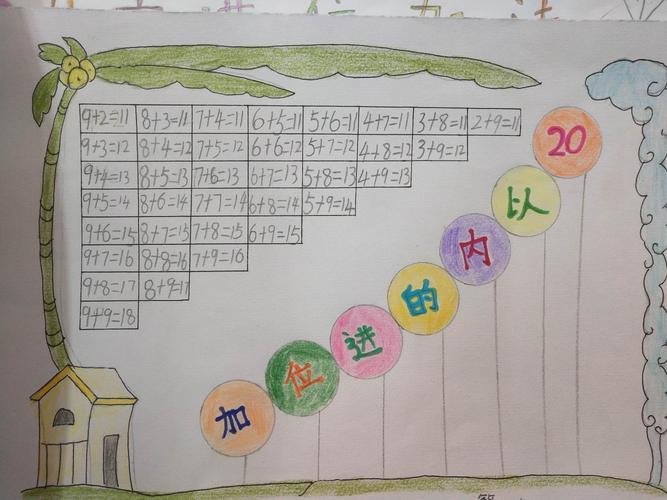 9+2=11 8+3=11 7+4=11 6+5=11 5+6=11 4+7=11 3+8=11 2+9=11
9+3=12 8+4=12 7+5=12 6+6=12 5+7=12 4+8=12 3+9=12
9+4=13 8+5=13 7+6=13 6+7=13 5+8=13 4+9=13
9+5=14 8+6=14 7+7=14 6+8=14 5+9=14
9+6=15 8+7=15 7+8=15 6+9=15
9+7=16 8+8=16 7+9=16
9+8=17 8+9=17
9+9=18
20
以
内
的
进
位
加